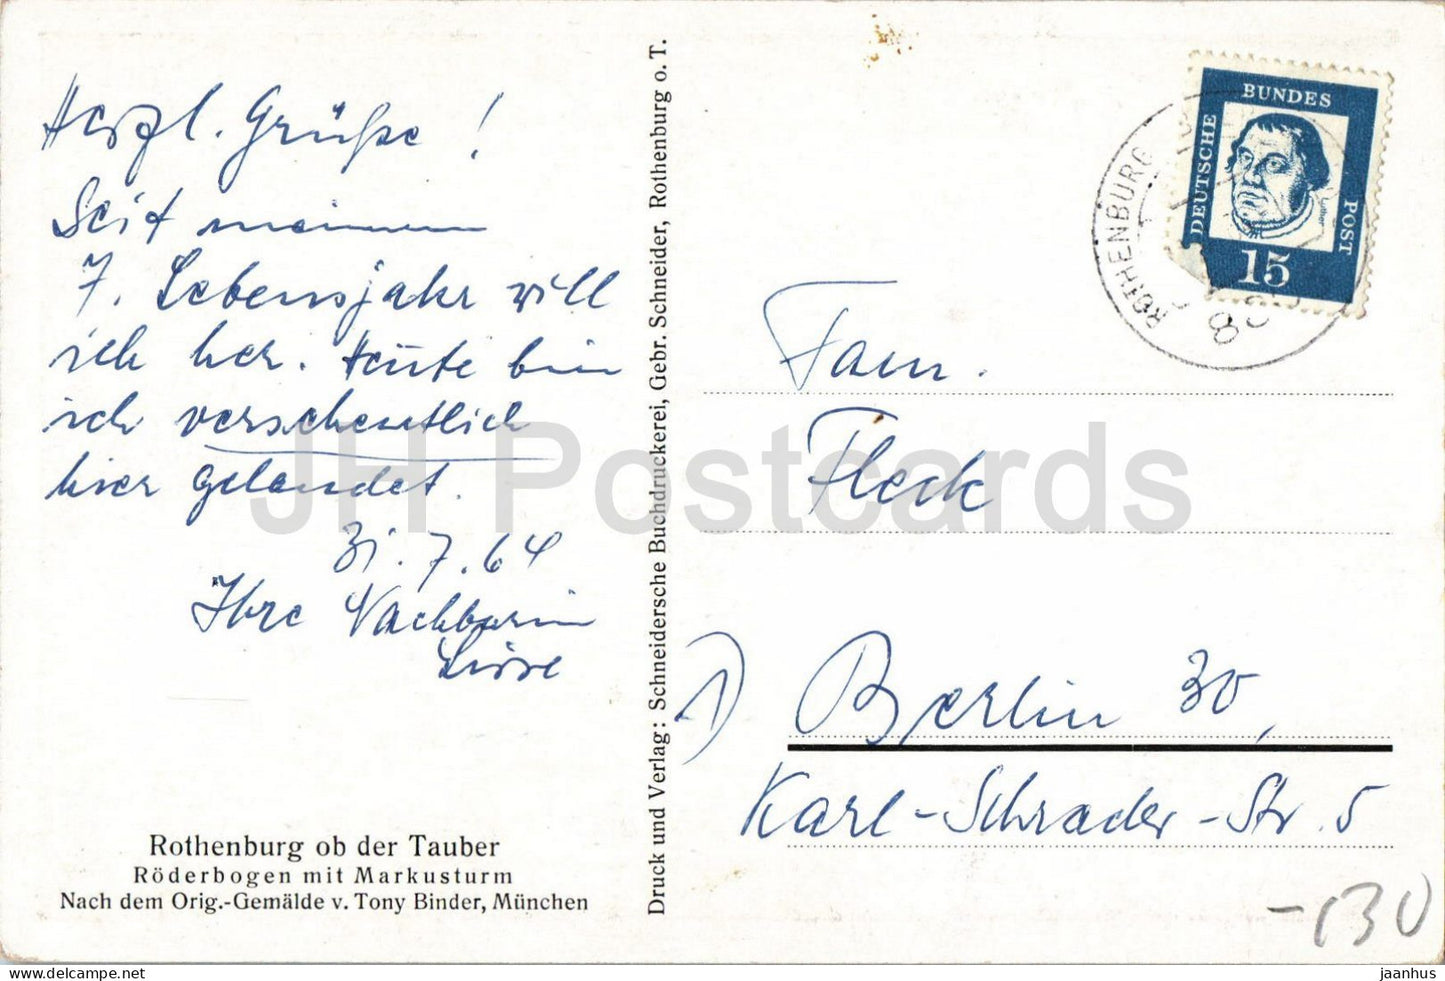 Herzl. Grüße!
Seit meinem
7. Lebensjahr will
ich her. Heute bin
ich versehentlich
hier gelandet.
31.7.64
Ihre Nachbarin
Rothenburg ob der Tauber
Röderbogen mit Markusturm
Nach dem Orig.-Gemälde v. Tony Binder, München
Druck und Verlag: Schneidersche Buchdruckerei, Gebr. Schneider, Rothenburg o. T.
ROTHENBURG
DEUTSCHE
BUNDES
POST
Luther
15
Fam.
Fleck
1) Berlin 30,
Karl-Schrader-Str. 5
-130
JH Postcards
jaanhus